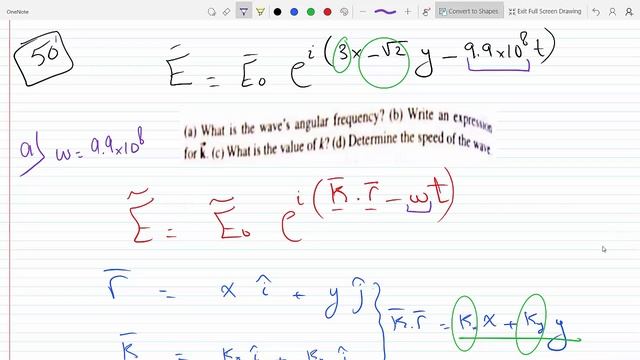 OneNote
Convert to Shapes
Exit Full Screen Drawing
50
Ẽ = Ẽ₀ e^{i(3x − √2 y − 9.9×10⁸ t)}
(a) What is the wave's angular frequency? (b) Write an expression
for k⃗. (c) What is the value of k? (d) Determine the speed of the wave
a) ω = 9.9×10⁸
Ẽ = Ẽ₀ e^{i(k̄ . r̄ − ωt)}
r̄ = x î + y ĵ
k̄ . r̄ = kₓ x + k_y y
k̄ = kₓ î + k_y ĵ